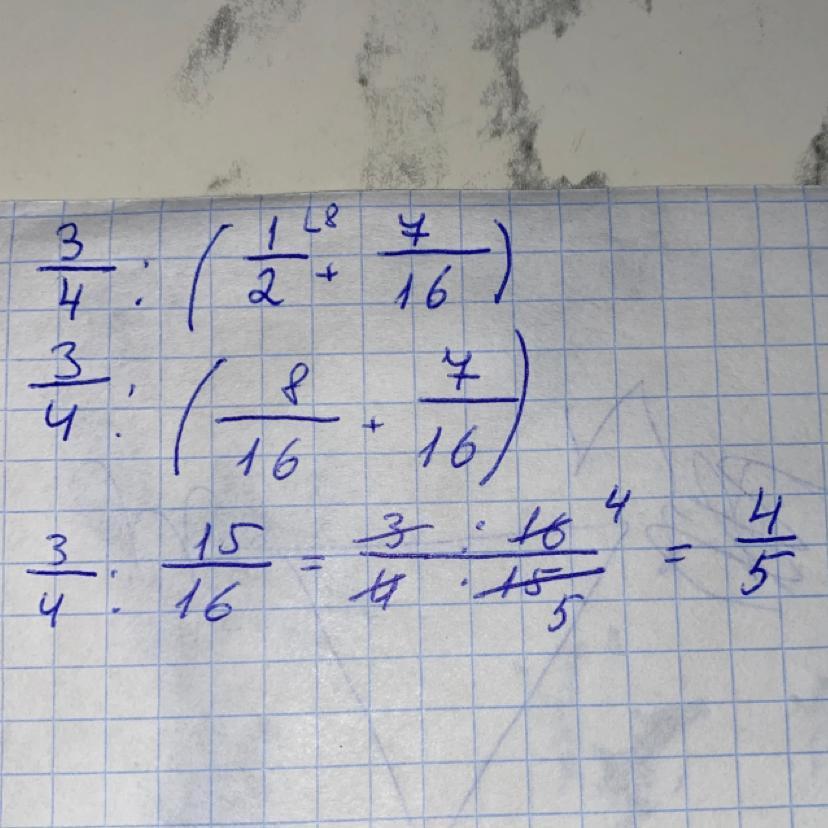 3/4 : (1/2 ⌞8 + 7/16)
3/4 : (8/16 + 7/16)
3/4 : 15/16 = 3 · 16 4 / 4 · 15 5 = 4/5